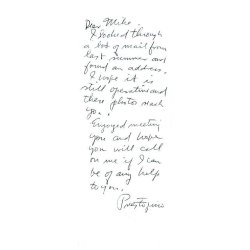 Dear Mike
I looked through
a lot of mail from
last summer and
found an address.
I hope it is
still operating and
these photos reach
you.
Enjoyed meeting
you and hope
you will call
on me if I can
be of any help
to you.